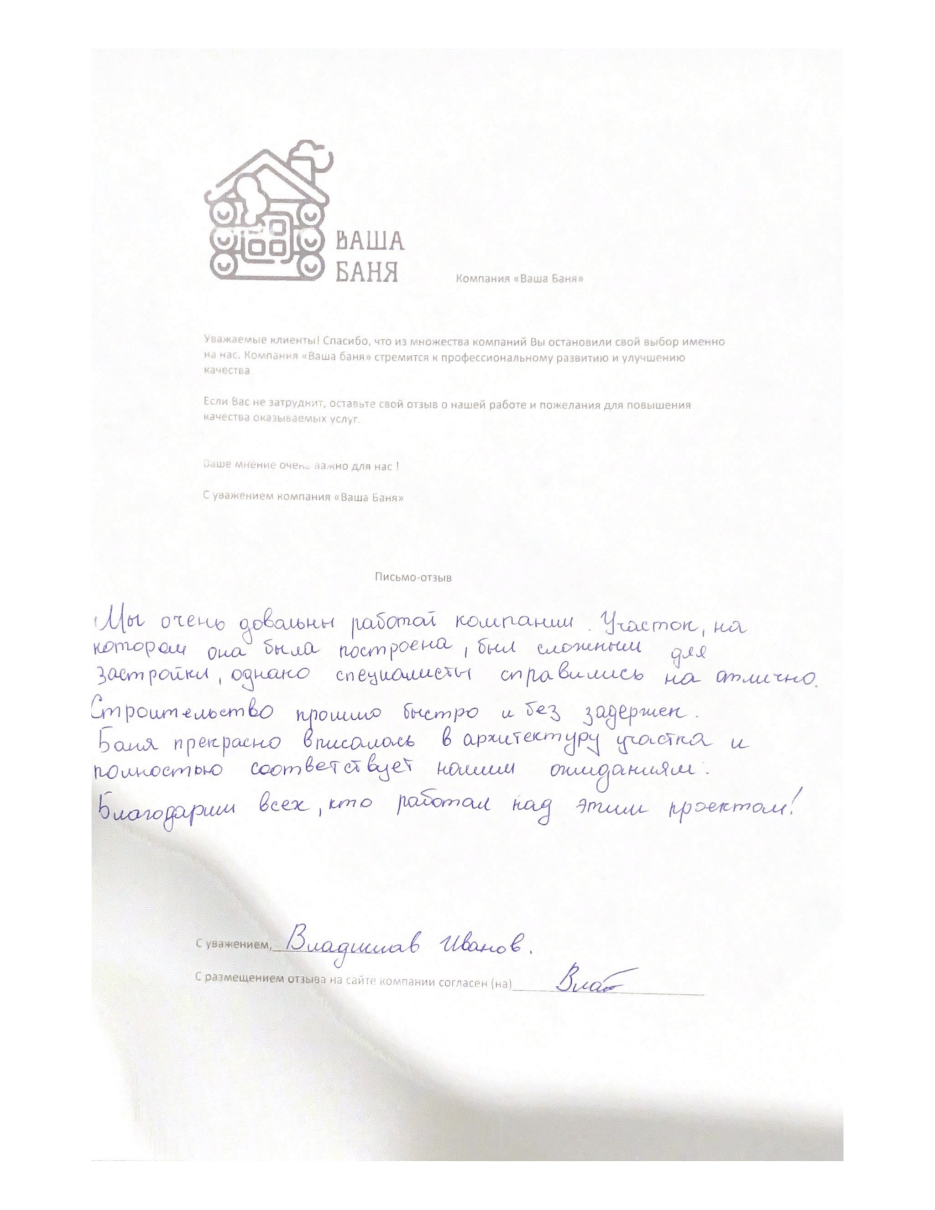 ВАША
БАНЯ
Компания «Ваша Баня»
Уважаемые клиенты! Спасибо, что из множества компаний Вы остановили свой выбор именно
на нас. Компания «Ваша баня» стремится к профессиональному развитию и улучшению
качества
Если Вас не затруднит, оставьте свой отзыв о нашей работе и пожелания для повышения
качества оказываемых услуг.
Ваше мнение очень важно для нас !
С уважением компания «Ваша Баня»
Письмо-отзыв
Мы очень довольны работой компании. Участок, на
котором она была построена, был сложным для
застройки, однако специалисты справились на отлично.
Строительство прошло быстро и без задержек.
Баня прекрасно вписалась в архитектуру участка и
полностью соответствует нашим ожиданиям.
Благодарим всех, кто работал над этим проектом!
С уважением, Владислав Иванов.
С размещением отзыва на сайте компании согласен (на)